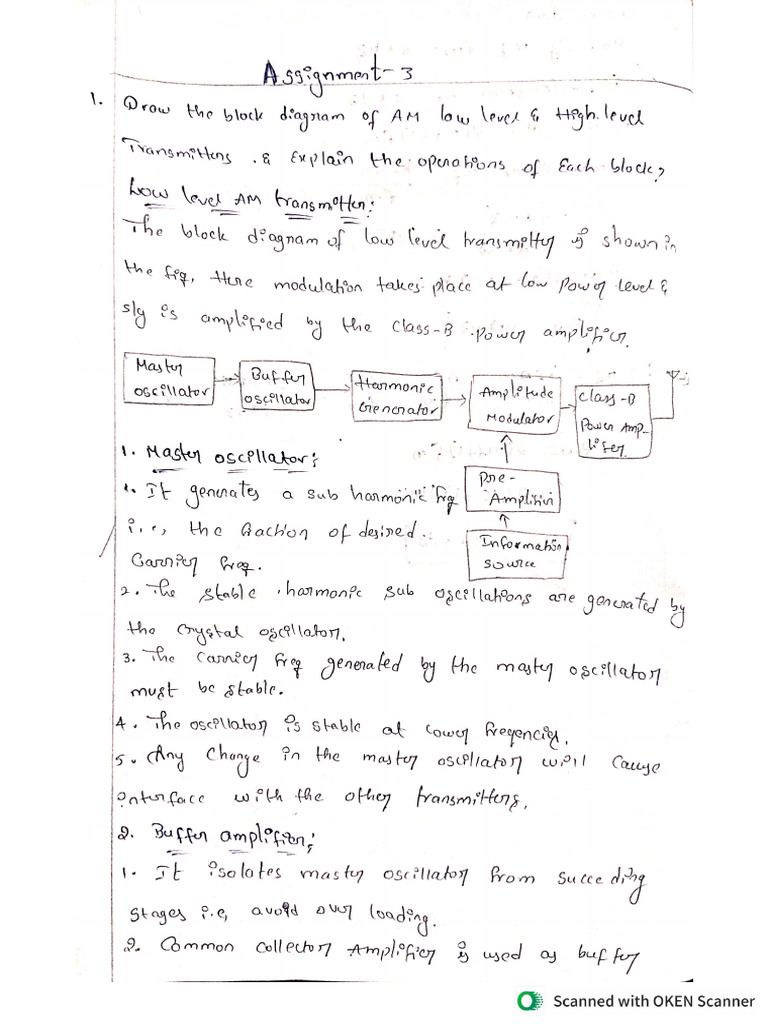 Assignment-3
1. Draw the block diagram of AM low level & High level
Transmitters. & Explain the operations of Each block?
Low level AM transmitter:
The block diagram of low level transmitter is shown in
the fig, Here modulation takes place at low power level &
sly is amplified by the class-B power amplifier.
Master
oscillator
Buffer
oscillator
Harmonic
Generator
Amplitude
Modulator
class-B
Power Amp-
lifier
1. Master oscillator:
Pre-
Amplifier
1. It generates a sub harmonic frq
i.e., the fraction of desired.
Information
source
Carrier freq.
2. The stable harmonic sub oscillations are generated by
the crystal oscillator.
3. The carrier freq generated by the master oscillator
must be stable.
4. The oscillator is stable at lower freqencies.
5. Any change in the master oscillator will cause
interface with the other transmitters.
2. Buffer amplifier:
1. It isolates master oscillator from succeding
stages i.e, avoid over loading.
2. Common collector Amplifier is used as buffer
Scanned with OKEN Scanner